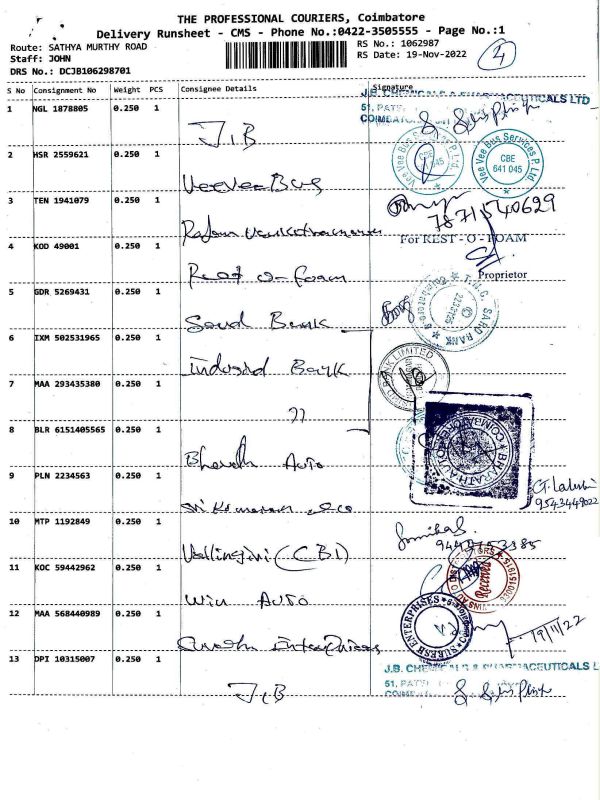 THE PROFESSIONAL COURIERS, Coimbatore
Delivery Runsheet - CMS - Phone No.:0422-3505555 - Page No.:1
Route: SATHYA MURTHY ROAD
RS No.: 1062987
Staff: JOHN
RS Date: 19-Nov-2022
4
DRS No.: DCJB106298701
S No Consignment No Weight PCS Consignee Details Signature
J.B. CHEMICALS & PHARMACEUTICALS LTD
1 NGL 1878805 0.250 1 J.B
2 HSR 2559621 0.250 1 VeeVee Bus
Vee Vee Bus Services P. Ltd. CBE 641 045
Vee Vee Bus Services P. Ltd. CBE 641 045
3 TEN 1941079 0.250 1
7871540629
4 KOD 49001 0.250 1 Rest o-foam
For REST - O - FOAM
Proprietor
5 GDR 5269431 0.250 1 Bank
6 IXM 502531965 0.250 1 Indusind Bank
BANK LIMITED
7 MAA 293435380 0.250 1 "
8 BLR 6151405565 0.250 1 Bharath Auto
BHARATH AUTO
COIMBATORE
9 PLN 2234563 0.250 1 Sri Kumaran
9543449022
10 MTP 1192849 0.250 1 Vellingiri (CBI)
11 KOC 59442962 0.250 1 Win Auto
Receiver
12 MAA 568440989 0.250 1 Enterprises
SURESH ENTERPRISES
19/11/22
13 DPI 10315007 0.250 1 J.B
J.B. CHEMICALS & PHARMACEUTICALS L
51,